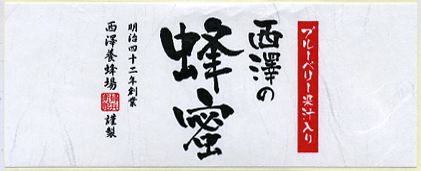 ブルーベリー果汁入り
西澤の
蜂蜜
明治四十二年創業
西澤養蜂場
謹製